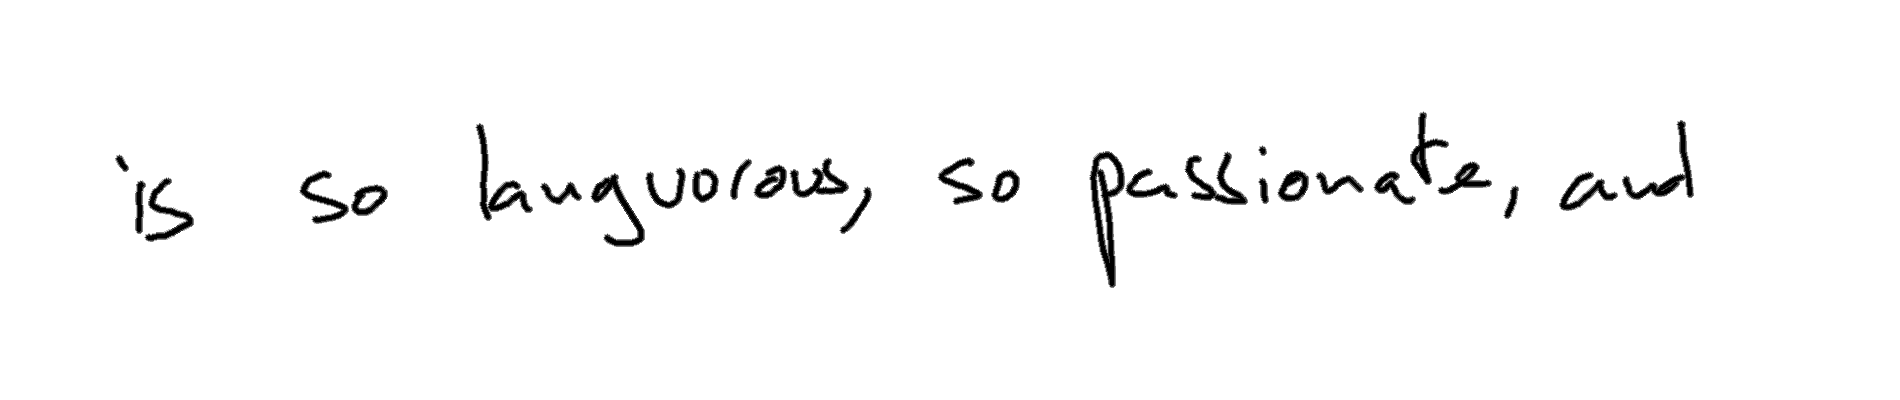 is so languorous, so passionate, and